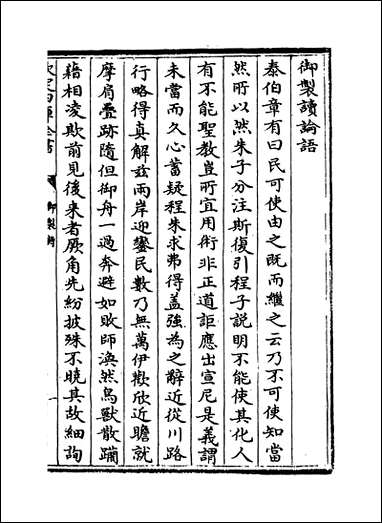 御製讀論語
泰伯章有曰民可使由之既而繼之云乃不可使知當
然所以然朱子分注斯復引程子説明不能使其化人
有不能聖教豈所宜用術非正道詎應出宣尼是義謂
未當而久心蓄疑程朱求弗得蓋強為之辭近從川路
行略得真解兹兩岸迎鑾民數乃無萬伊歡欣近瞻就
摩肩疊跡隨但御舟一過奔避如敗師渙然鳥獸散躪
藉相凌欺前見後来者厥角先紛披殊不曉其故細詢
欽定四庫全書
御製詩
一